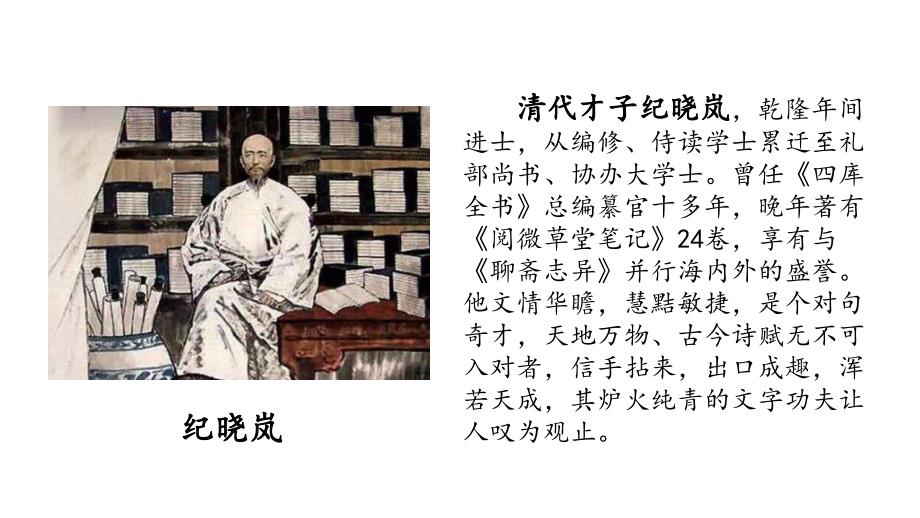 清代才子纪晓岚，乾隆年间
进士，从编修、侍读学士累迁至礼
部尚书、协办大学士。曾任《四库
全书》总编纂官十多年，晚年著有
《阅微草堂笔记》24卷，享有与
《聊斋志异》并行海内外的盛誉。
他文情华瞻，慧黠敏捷，是个对句
奇才，天地万物、古今诗赋无不可
入对者，信手拈来，出口成趣，浑
若天成，其炉火纯青的文字功夫让
人叹为观止。
纪晓岚